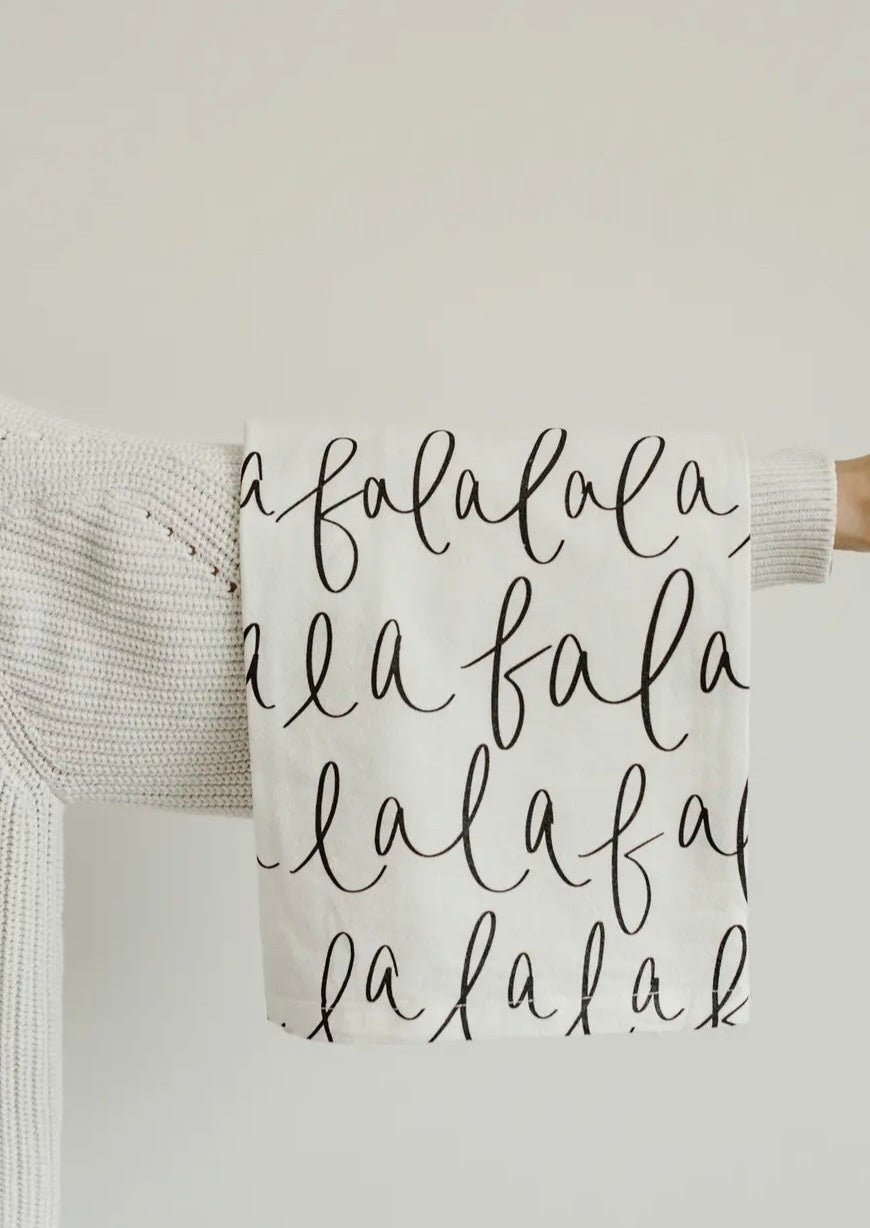 a falalala
a la fala
lala fal
la la la f